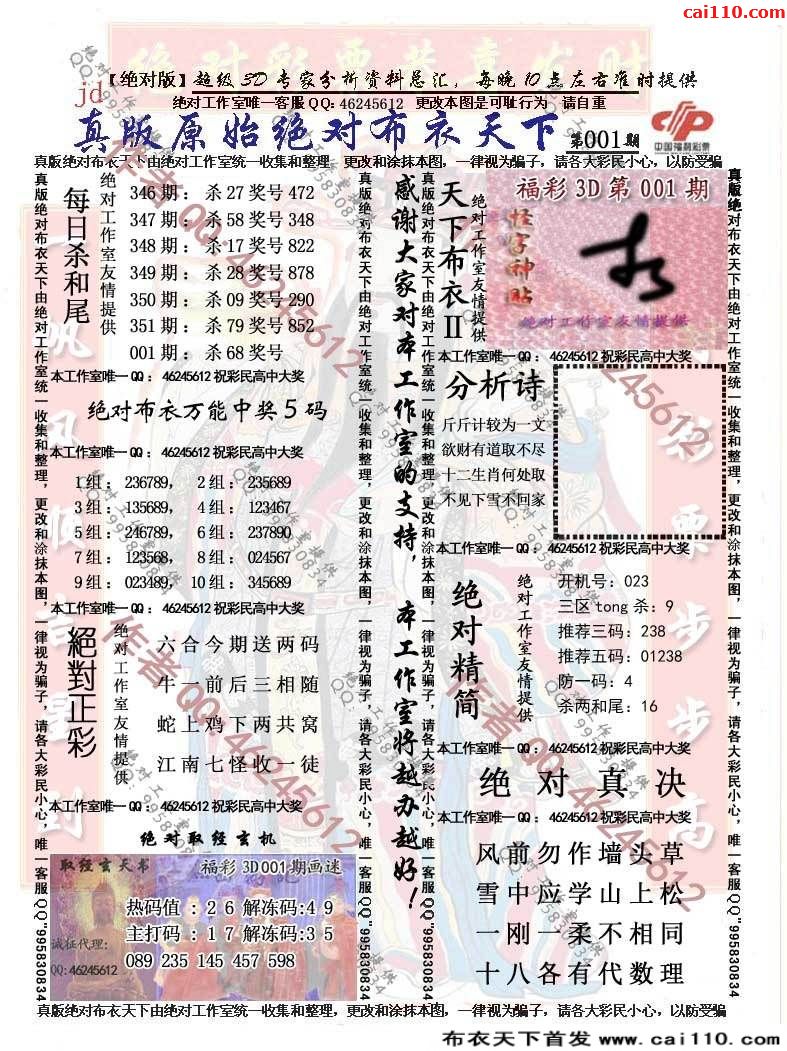 cai110.com
【绝对版】超级3D专家分析资料总汇，每晚10点左右准时提供
jd
绝对工作室唯一客服QQ：46245612 更改本图是可耻行为 请自重
真版原始绝对布衣天下 第001期
中国福利彩票
真版绝对布衣天下由绝对工作室统一收集和整理，更改和涂抹本图，一律视为骗子，请各大彩民小心，以防受骗
每日杀和尾
绝对工作室友情提供
346期：杀27奖号472
347期：杀58奖号348
348期：杀17奖号822
349期：杀28奖号878
350期：杀09奖号290
351期：杀79奖号852
001期：杀68奖号
本工作室唯一QQ：46245612祝彩民高中大奖
绝对布衣万能中奖5码
本工作室唯一QQ：46245612祝彩民高中大奖
1组：236789， 2组：235689
3组：135689， 4组：123467
5组：246789， 6组：237890
7组：123568， 8组：024567
9组：023489， 10组：345689
本工作室唯一QQ：46245612祝彩民高中大奖
絕對正彩
绝对工作室友情提供
六合今期送两码
牛一前后三相随
蛇上鸡下两共窝
江南七怪收一徒
本工作室唯一QQ：46245612祝彩民高中大奖
绝对取经玄机
取经玄天书 福彩3D001期画迷
热码值：26解冻码：49
主打码：17解冻码：35
089 235 145 457 598
诚征代理：
QQ:46245612
感谢大家对本工作室的支持，本工作室将越办越好！
天下布衣II
绝对工作室友情提供
福彩3D第001期
怪字神贴
绝对工作室友情提供
本工作室唯一QQ：46245612祝彩民高中大奖
分析诗
斤斤计较为一文
欲财有道取不尽
十二生肖何处取
不见下雪不回家
本工作室唯一QQ：46245612祝彩民高中大奖
绝对精简
绝对工作室友情提供
开机号：023
三区tong杀：9
推荐三码：238
推荐五码：01238
防一码：4
杀两和尾：16
本工作室唯一QQ：46245612祝彩民高中大奖
绝对真决
本工作室唯一QQ：46245612祝彩民高中大奖
风前勿作墙头草
雪中应学山上松
一刚一柔不相同
十八各有代数理
真版绝对布衣天下由绝对工作室统一收集和整理，更改和涂抹本图，一律视为骗子，请各大彩民小心，唯一客服QQ"995830834
真版绝对布衣天下由绝对工作室统一收集和整理，更改和涂抹本图，一律视为骗子，请各大彩民小心，唯一客服QQ"995830834
真版绝对布衣天下由绝对工作室统一收集和整理，更改和涂抹本图，一律视为骗子，请各大彩民小心，唯一客服QQ"995830834
真版绝对布衣天下由绝对工作室统一收集和整理，更改和涂抹本图，一律视为骗子，请各大彩民小心，唯一客服QQ"995830834
真版绝对布衣天下由绝对工作室统一收集和整理，更改和涂抹本图，一律视为骗子，请各大彩民小心，以防受骗
布衣天下首发 www.cai110.com